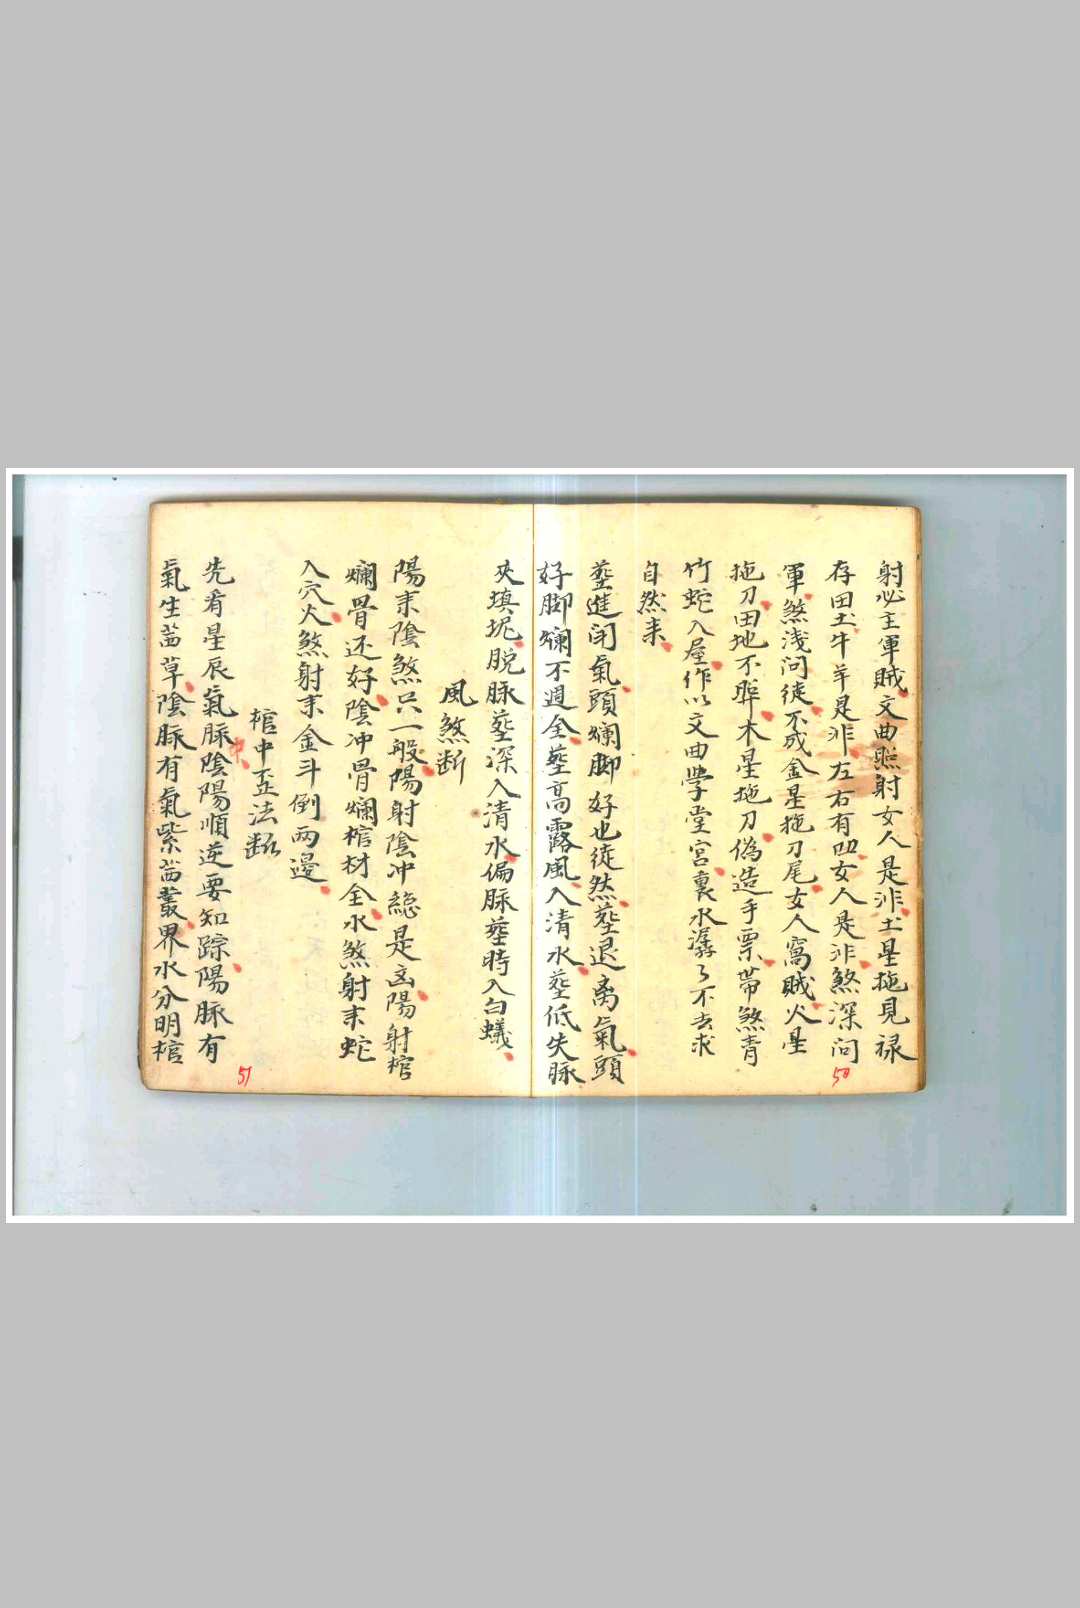 射必主軍賊文曲照射女人是非土星拖見禄
存田土牛羊是非左右有凹女人是非煞深问
軍煞浅问徒不成金星拖刀尾女人窩賊火星
拖刀田地不 木星拖刀偽造手票帶煞青
竹蛇入屋作以文曲学堂宮裏水潺了不去求
自然来
塟進闭氣頭爛脚好也徒然塟退离氣頭
好脚爛不週全塟高露風入清水塟低失脉
夾填坭脱脉塟深入清水偏脉塟時入白蟻
風煞断
陽来陰煞只一般陽射陰冲總是凶陽射棺
爛骨还好陰冲骨爛棺材全水煞射来蛇
入穴火煞射来金斗倒两邊
棺中盃法断
先看星辰氣脉陰陽順逆要知踪陽脉有
中
氣生菑草陰脉有氣紫菑叢界水分明棺
50
51